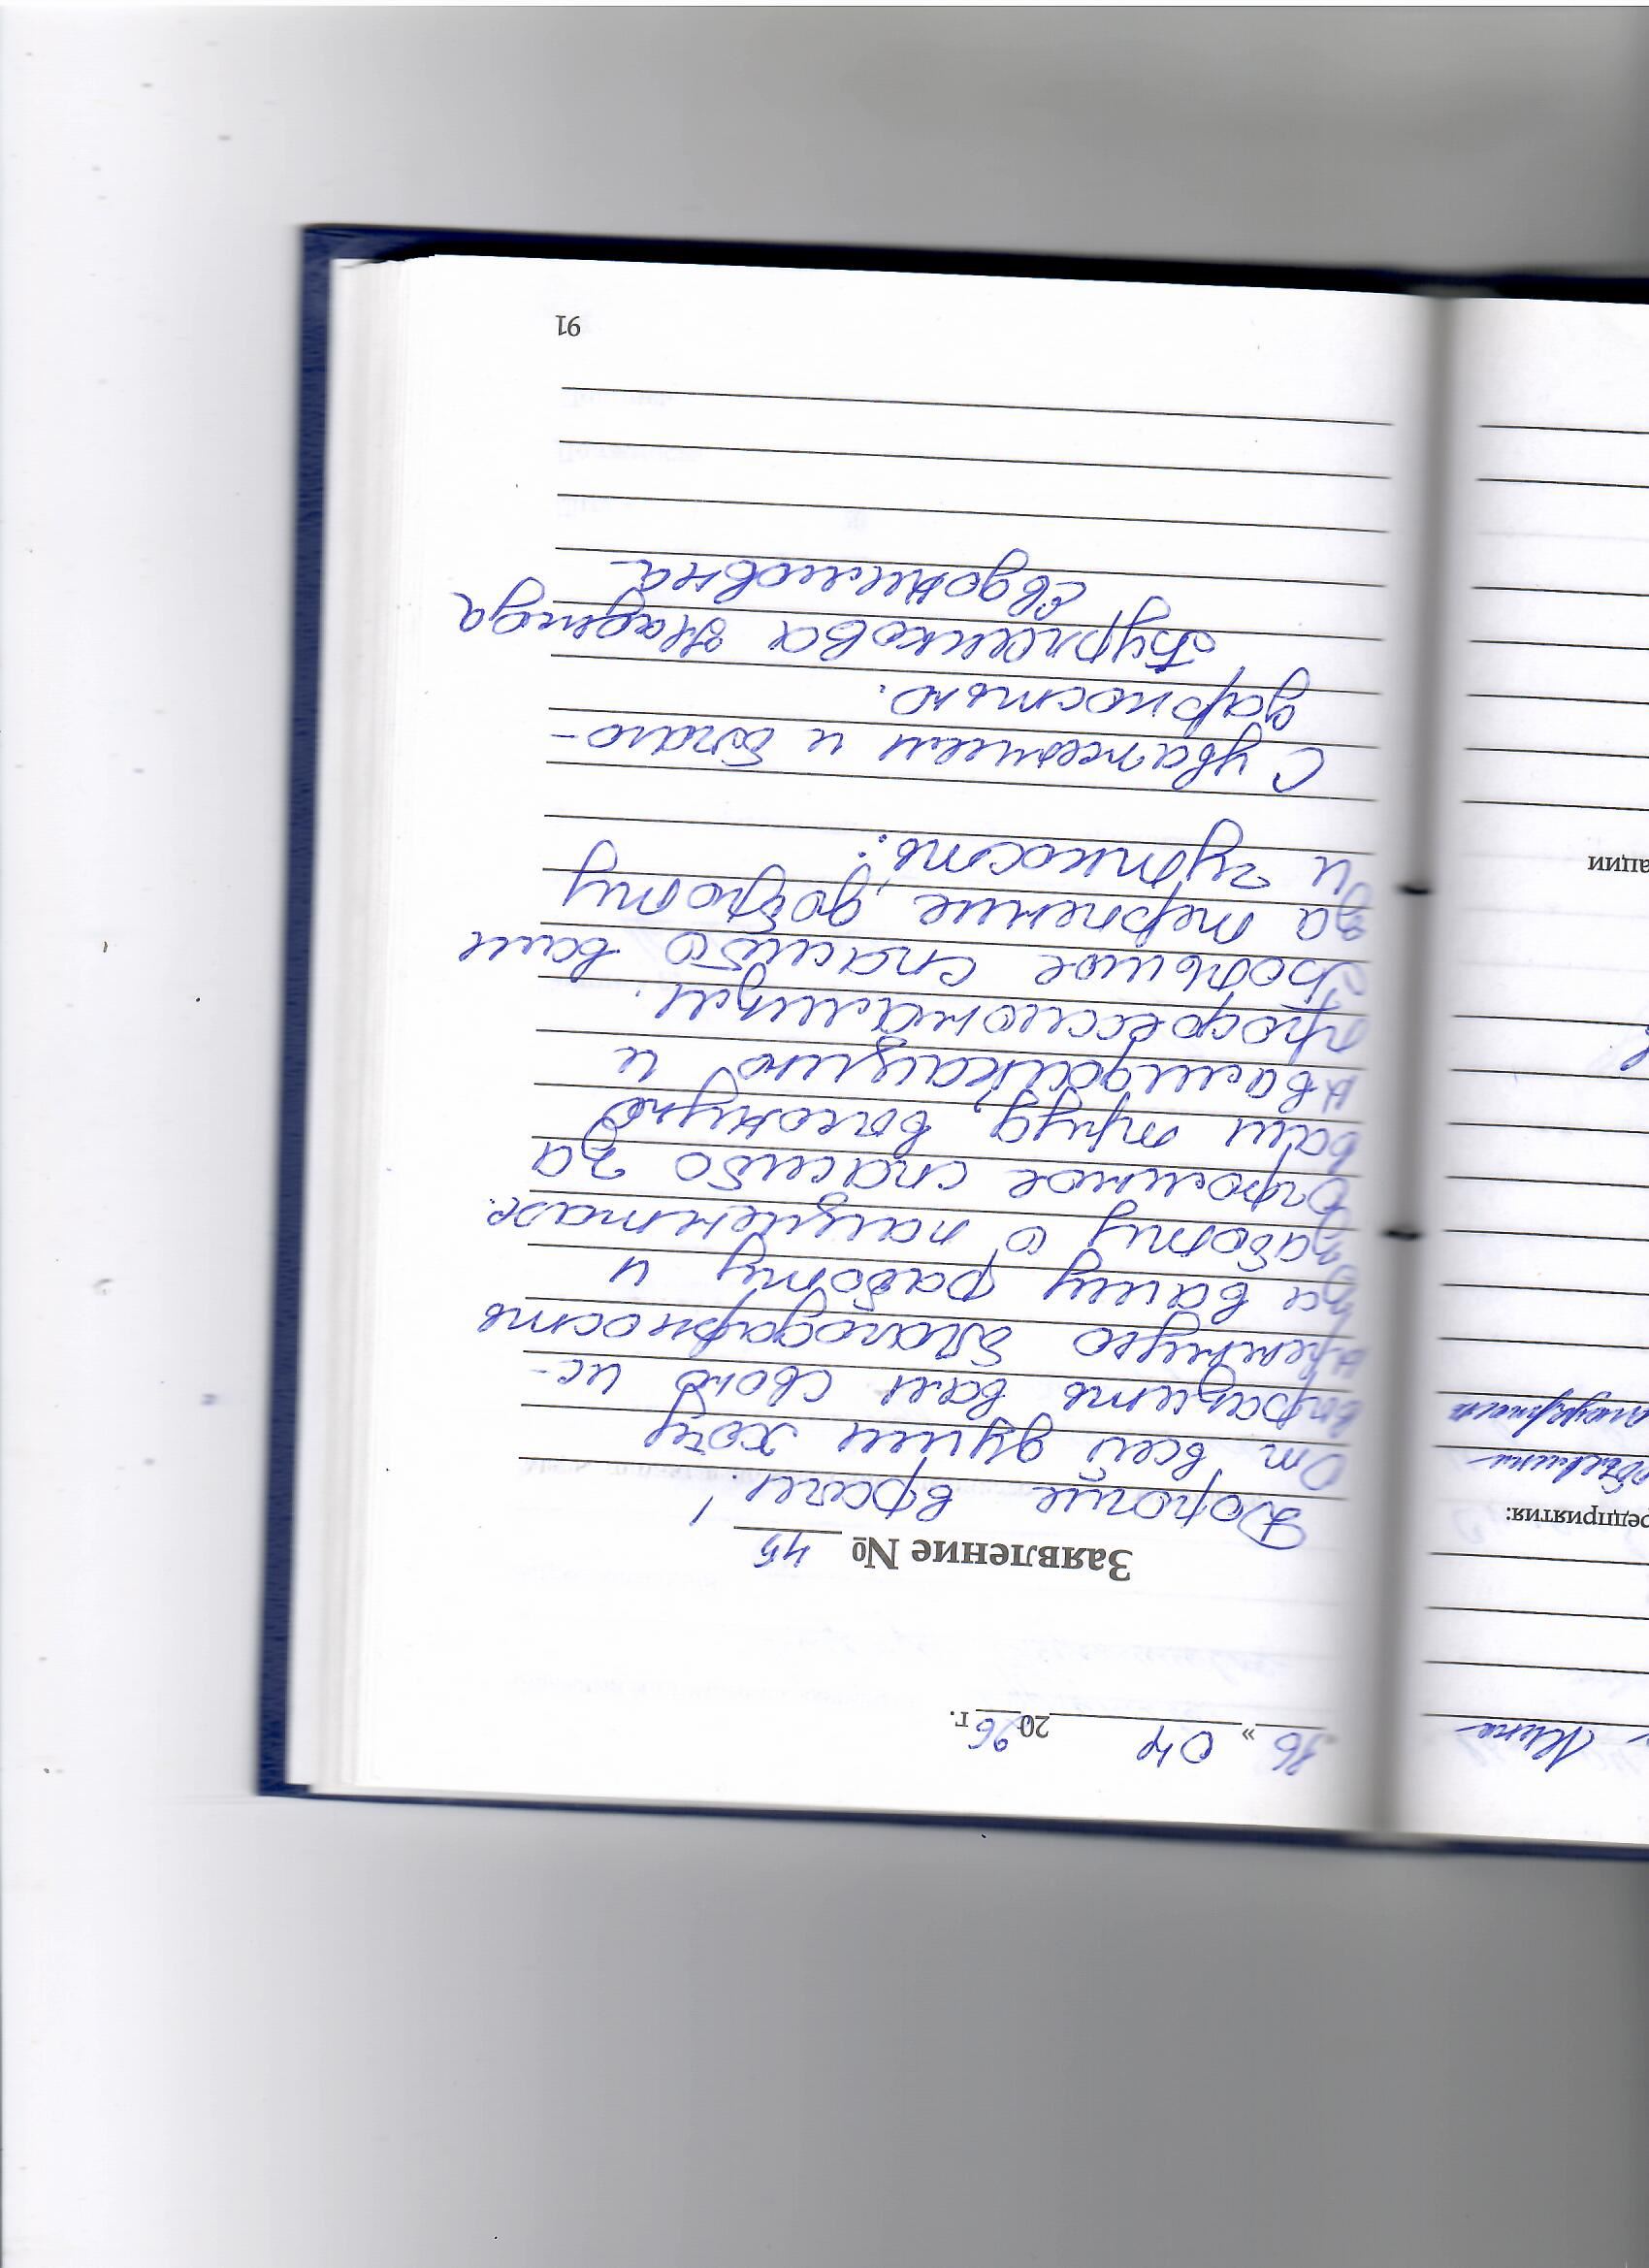 «16» 04 2026 г.
Заявление № 45
Дорогие врачи!
От всей души хочу
выразить вам свою ис-
креннюю благодарность
за вашу работу и
заботу о пациентах.
Огромное спасибо за
ваш труд,
квалификацию и
профессионализм.
Большое спасибо вам
за терпение, доброту
и чуткость.
С уважением и благо-
дарностью.
Бурлакова Надежда
Евдокимовна
91
едприятия:
ации